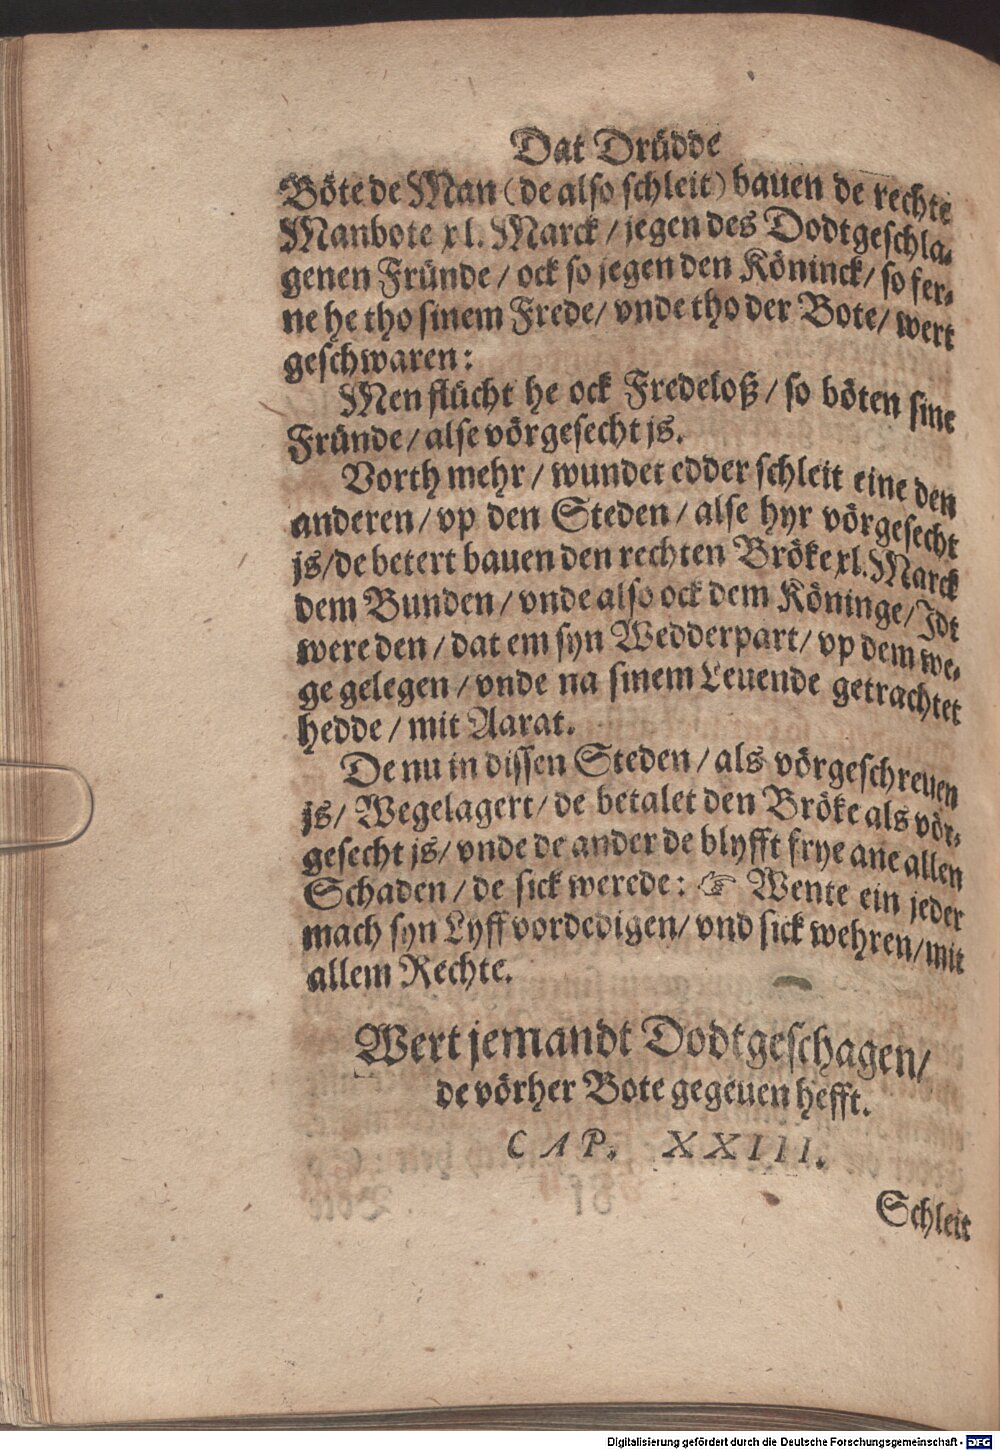 Dat Drüdde
Böte de Man (de also schleit) bauen de rechte
Manbote xl. Marck / jegen des Dodtgeschla-
genen Fründe / ock so jegen den Köninck / so fer-
ne he tho sinem Frede / vnde tho der Bote / wert
geschwaren:
Men flücht he ock Fredeloß / so böten sine
Fründe / alse vörgesecht js.
Vorth mehr / wundet edder schleit eine den
anderen / vp den Steden / alse hyr vörgesecht
js / de betert bauen den rechten Bröke xl. Marck
dem Bunden / vnde also ock dem Köninge / Jdt
were den / dat em syn Wedderpart / vp dem we-
ge gelegen / vnde na sinem Leuende getrachtet
hedde / mit Aarat.
De nu in dissen Steden / als vörgeschreuen
js / Wegelagert / de betalet den Bröke als vör-
gesecht js / vnde de ander de blyfft frye ane allen
Schaden / de sick werede: ☞ Wente ein jeder
mach syn Lyff vordedigen / vnd sick wehren / mit
allem Rechte.
Wert jemandt Dodtgeschagen /
de vörher Bote gegeuen hefft.
CAP. XXIII.
Schleit
Digitalisierung gefördert durch die Deutsche Forschungsgemeinschaft - DFG